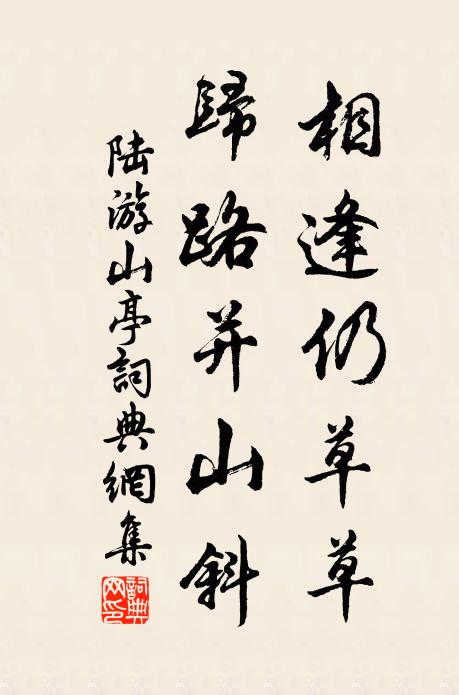 相逢仍草草
歸路并山斜
陆游山亭詞典網集
詞典网印